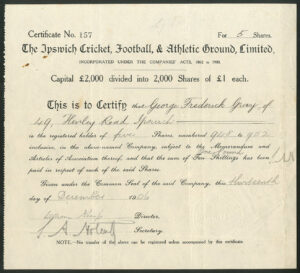 Certificate No. 157 For 5 Shares.
The Ipswich Cricket, Football, & Athletic Ground, Limited,
INCORPORATED UNDER THE COMPANIES' ACTS, 1862 to 1900.
Capital £2,000 divided into 2,000 Shares of £1 each.
This is to Certify that George Frederick of
49, Henley Road Ipswich
is the registered holder of five Shares numbered 948 to 952
inclusive, in the above-named Company, subject to the Memorandum and
Articles of Association thereof, and that the sum of Shillings has been
paid in respect of each of the said Shares.
Given under the Common Seal of the said Company, this thirteenth
day of December 1906
Director.
Secretary.
NOTE.—No transfer of the above can be registered unless accompanied by this certificate.